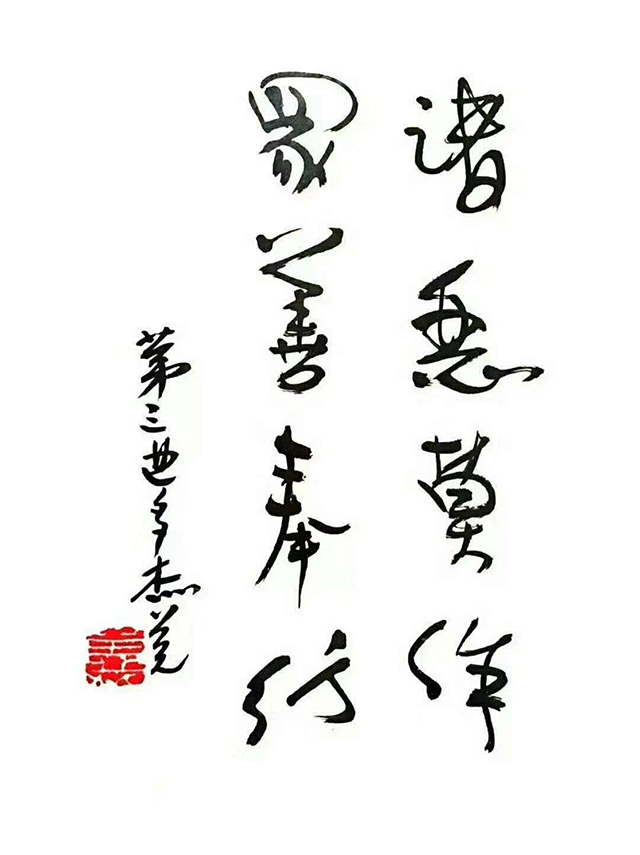 諸惡莫作
眾善奉行
第三世多杰羌